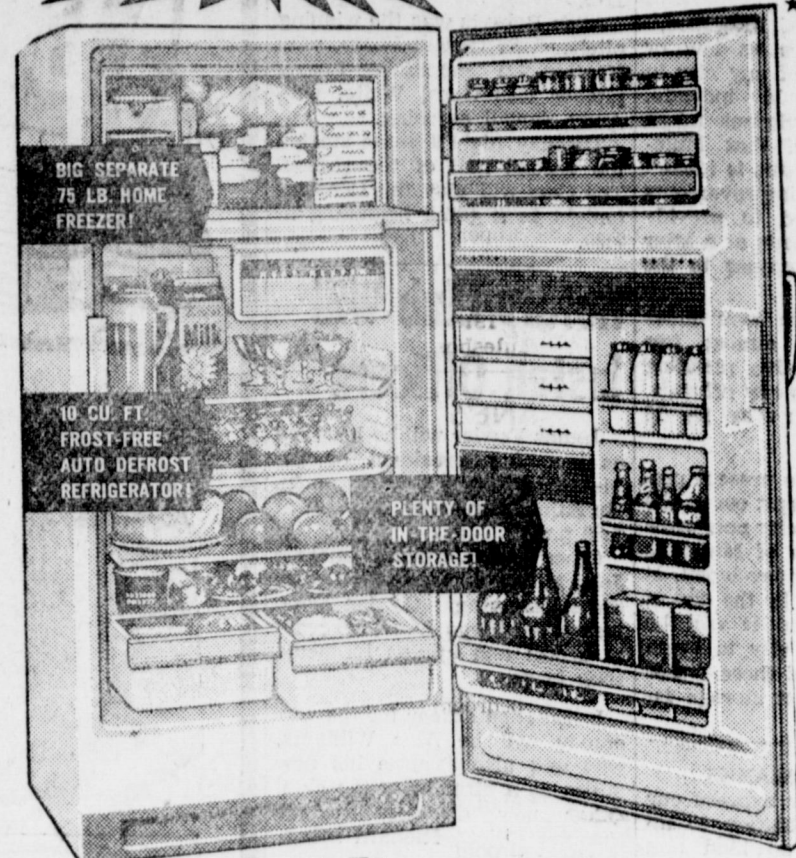 BIG SEPARATE
75 LB. HOME
FREEZER!
Milk
10 CU. FT.
FROST-FREE
AUTO DEFROST
REFRIGERATOR!
PLENTY OF
IN-THE-DOOR
STORAGE!